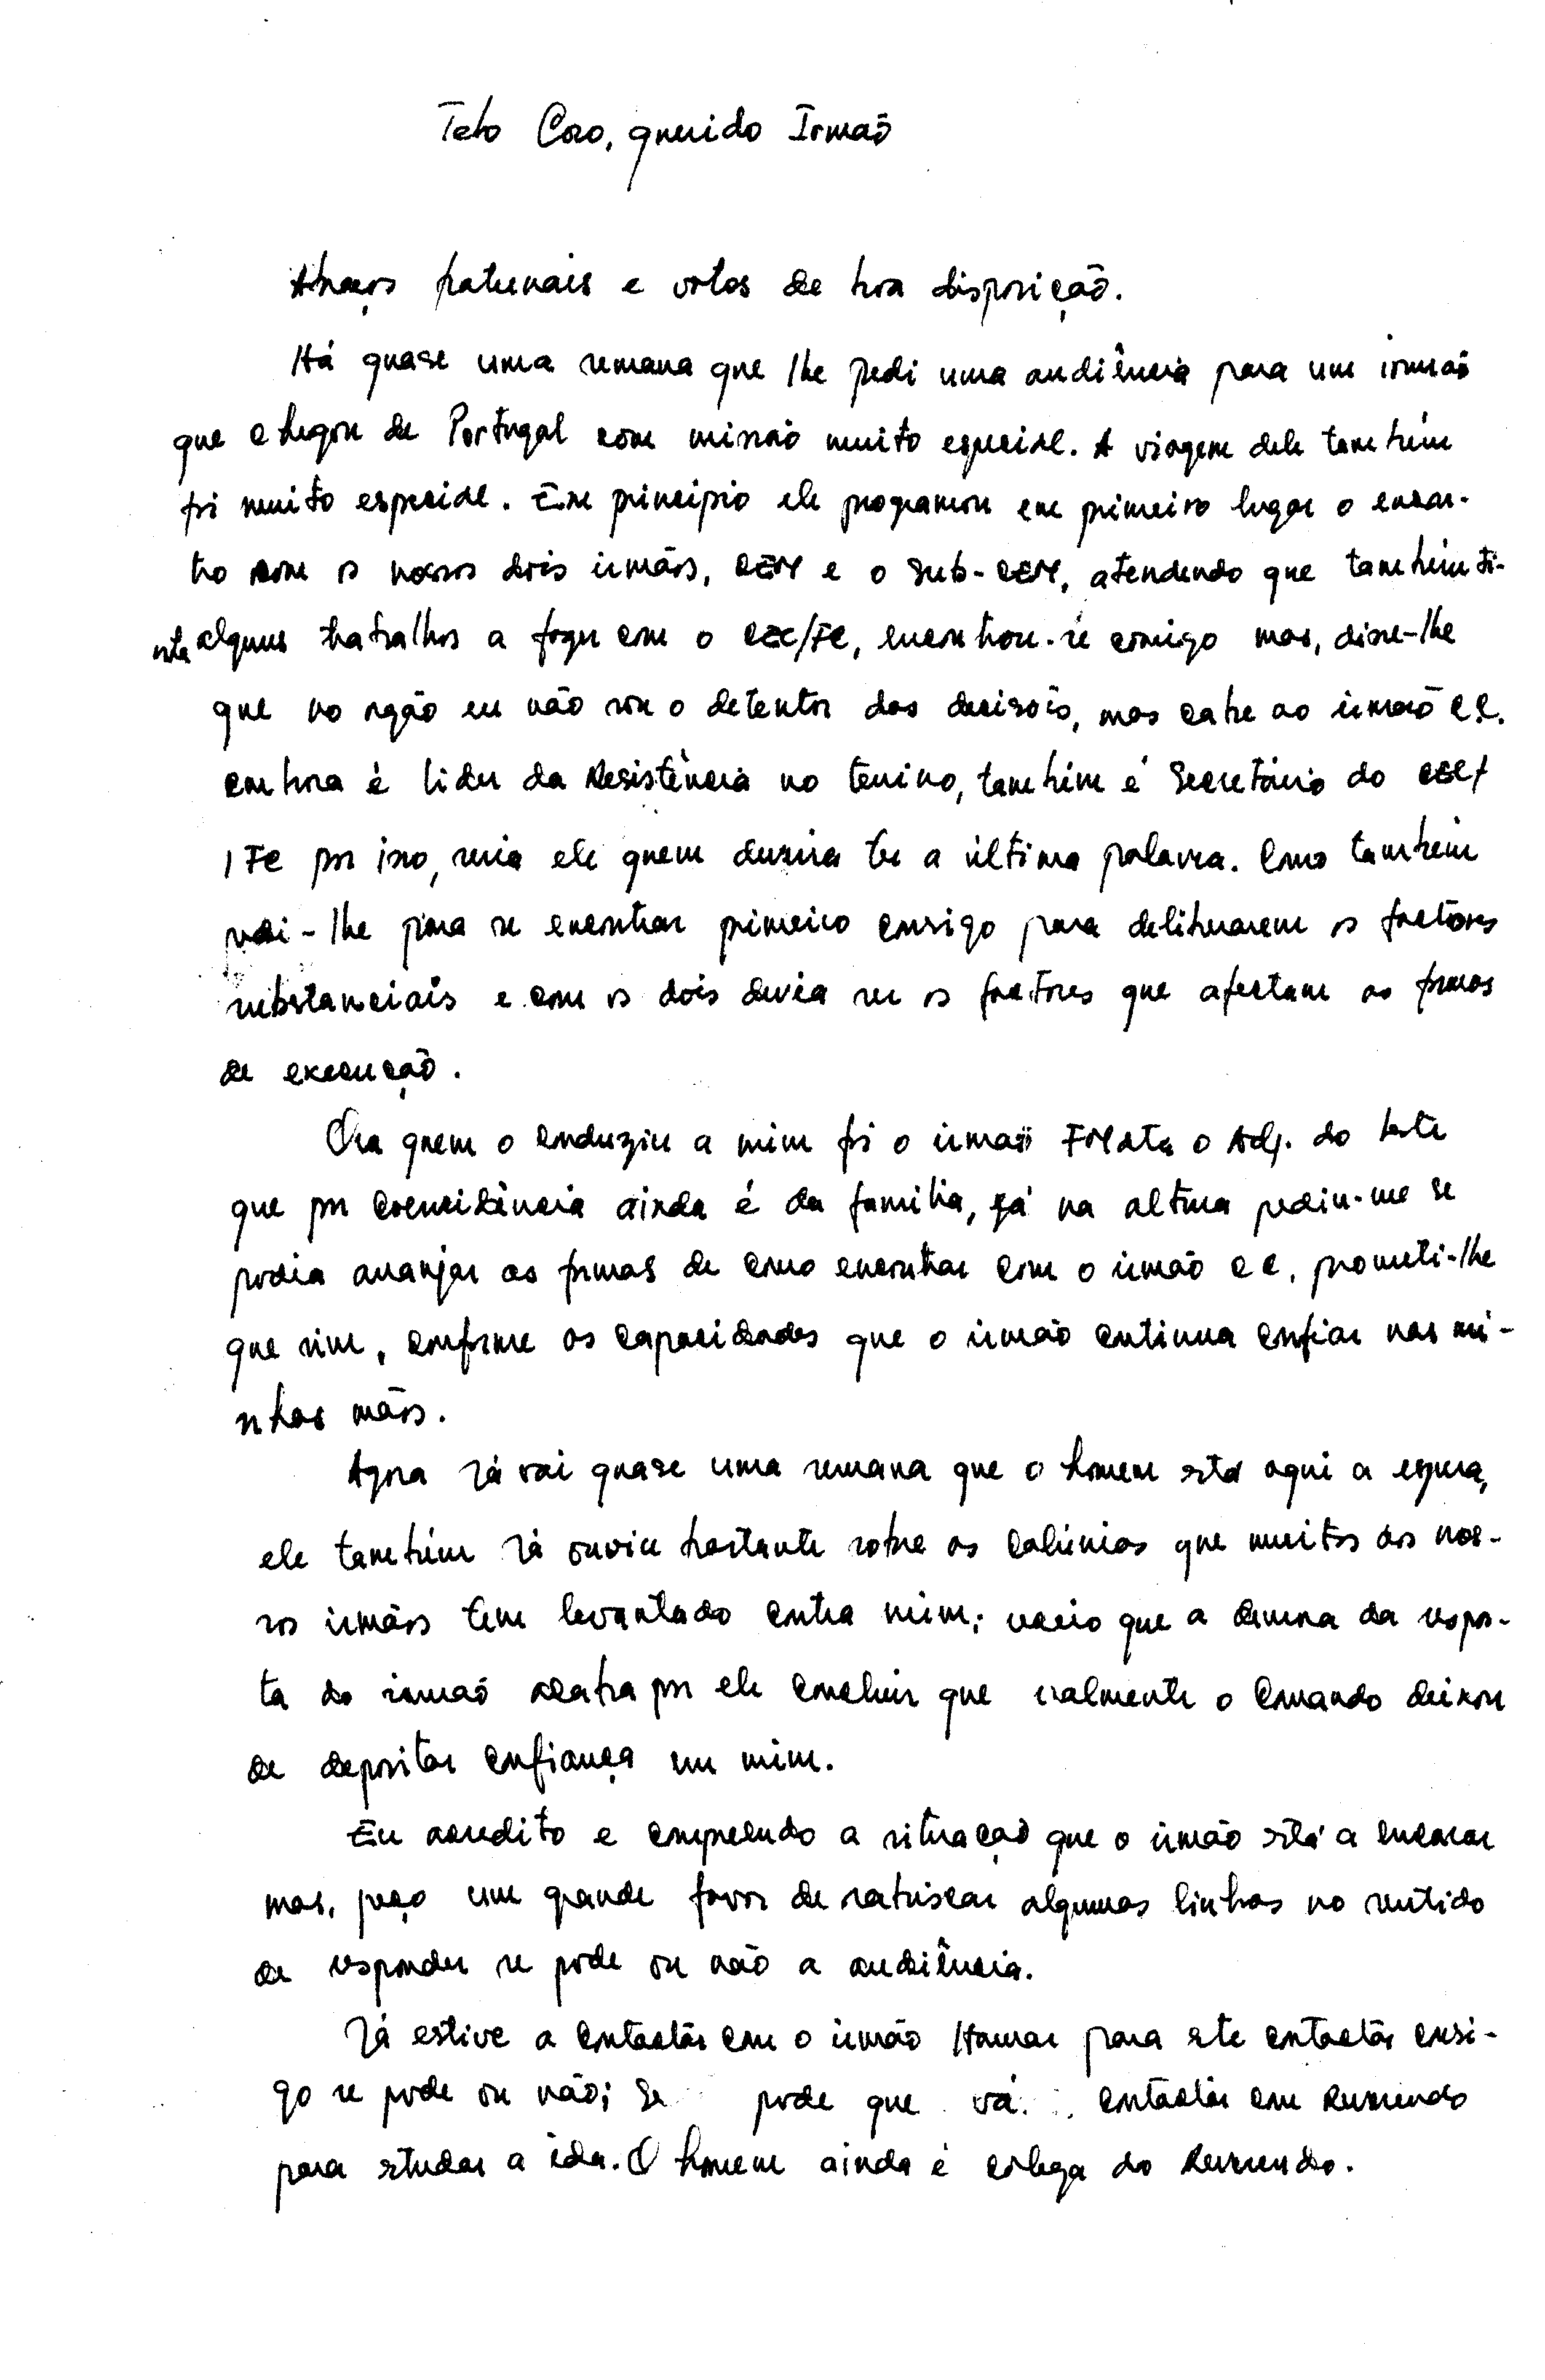 Caro, querido Irmão
Abraços fraternais e votos de boa disposição.
Há quase uma semana que lhe pedi uma audiência para um irmão
que chegou de Portugal com missão muito especial. A viagem dele também
foi muito especial. Em principio ele programou em primeiro lugar o encon-
tro com os nossos dois irmãos, CEM e o Sub-CEM, atendendo que também ti-
nha alguns trabalhos a fazer com o CEC/FC, encontrou-se comigo mas, disse-lhe
que no orgão eu não sou o detentor das decisões, mas cabe ao irmão C.C.
embora é lider da Resistência no terreno, também é Secretário do CEC/
/FC por isso, seria ele quem deveria ter a última palavra. Como também
pedi-lhe para se encontrar primeiro consigo para deliberarem os factores
substanciais e com os dois devia ser os factores que afectam as formas
de execução.
Ora quem o conduziu a mim foi o irmão o Adj. do
que por coencidência ainda é da familia, já na altura pediu-me se
podia arranjar as formas de como encontrar com o irmão CC, prometi-lhe
que sim, conforme as capacidades que o irmão continua confiar nas mi-
nhas mãos.
Agora já vai quase uma semana que o homem está aqui a espera,
ele também já ouviu bastante sobre as calúnias que muitos dos nos-
sos irmãos tem levantado contra mim; receio que a demora da respos-
ta do irmão acaba por ele concluir que realmente o Comando deixou
de depositar confiança em mim.
Eu acredito e compreendo a situação que o irmão está a encarar
mas, peço um grande favor de rabiscar algumas linhas no sentido
de responder se pode ou não a audiência.
Já estive a contactar com o irmão Hamar para este contactar consi-
go se pode ou não; se pode que vá contactar com Reverendo
para estudar a ida. O homem ainda é colega do Reverendo.